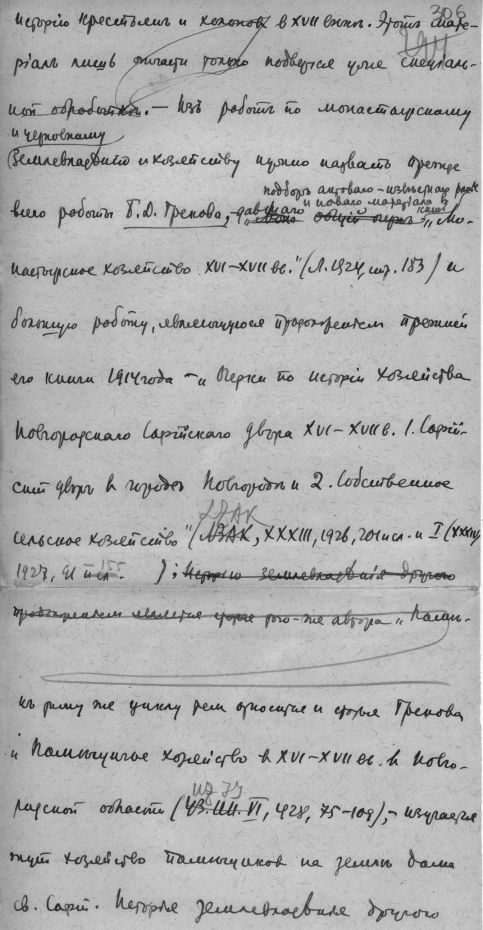 306
исторію крестьянъ и холоповъ в XVII вѣкѣ. Этотъ мате-
ріалъ лишь отчасти только подвергся уже спеціаль-
ной обработкѣ. — Изъ работъ по монастырскому
и церковному
землевладѣнію и хозяйству нужно назвать прежде
подборъ актоваго
и новаго матеріала
всего работы Б. Д. Грекова, давшаго общій очеркъ „Мо-
настырское хозяйство XVI–XVII вв." (Л. 1924, стр. 183) и
большую работу, являющуюся продолженіем прежней
его книги 1914 года – „Очерки по исторіи хозяйства
Новгородскаго Софійскаго двора XVI–XVII в. 1. Софій-
скій дворъ в городѣ Новгородѣ и 2. Собственное
ЛЗАК
сельское хозяйство" (ЛЗАК, XXXIII, 1926, 201 исл. и I (XXXIV)
1927, ); Исторію землевладѣнія другого
продолженіем является статья того-же автора „Помѣщ-
Къ тому же циклу тем относится и статья Грекова
„Помѣщичье хозяйство в XVI–XVII вв. в Новго-
родской области (УЗ. ИИ. VI, 1928, 75–109), – изучается
тут хозяйство помѣщиков на землѣ дома
св. Софіи. Исторія землевладѣнія другого